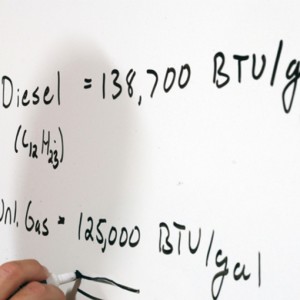 Diesel = 138,700 BTU/g
(C12H23)
Unl. Gas = 125,000 BTU/gal